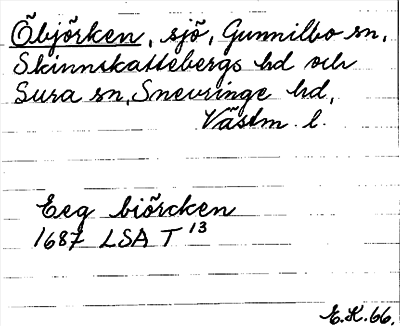 Öbjörken, sjö, Gunnilbo sn,
Skinnskattebergs hd och
Sura sn, Snevringe hd,
Västm. l.
Eeg biörcken
1687 LSA T 13
E.K. 66.